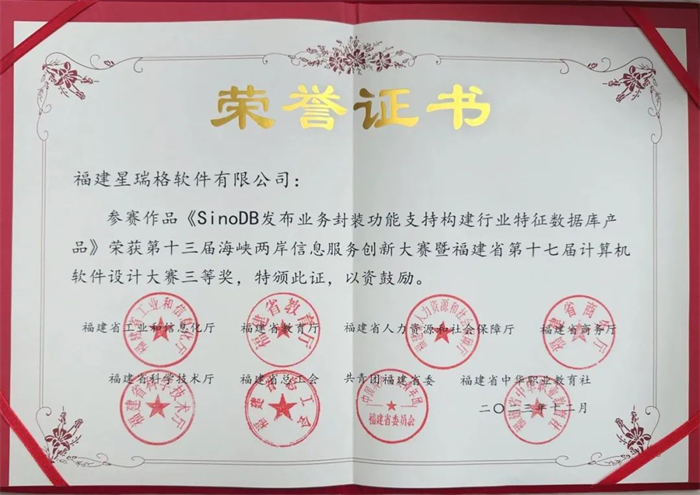 荣誉证书
福建星瑞格软件有限公司：
参赛作品《SinoDB发布业务封装功能支持构建行业特征数据库产
品》荣获第十三届海峡两岸信息服务创新大赛暨福建省第十七届计算机
软件设计大赛三等奖，特颁此证，以资鼓励。
福建省工业和信息化厅 福建省教育厅 福建省人力资源和社会保障厅 福建省商务厅
福建省科学技术厅 福建省总工会 共青团福建省委 福建省中华职业教育社
二〇二三年十二月
福建省工业和信息化厅
福建省教育厅
福建省人力资源和社会保障厅
福建省商务厅
福建省科学技术厅
福建省总工会
福建省委员会